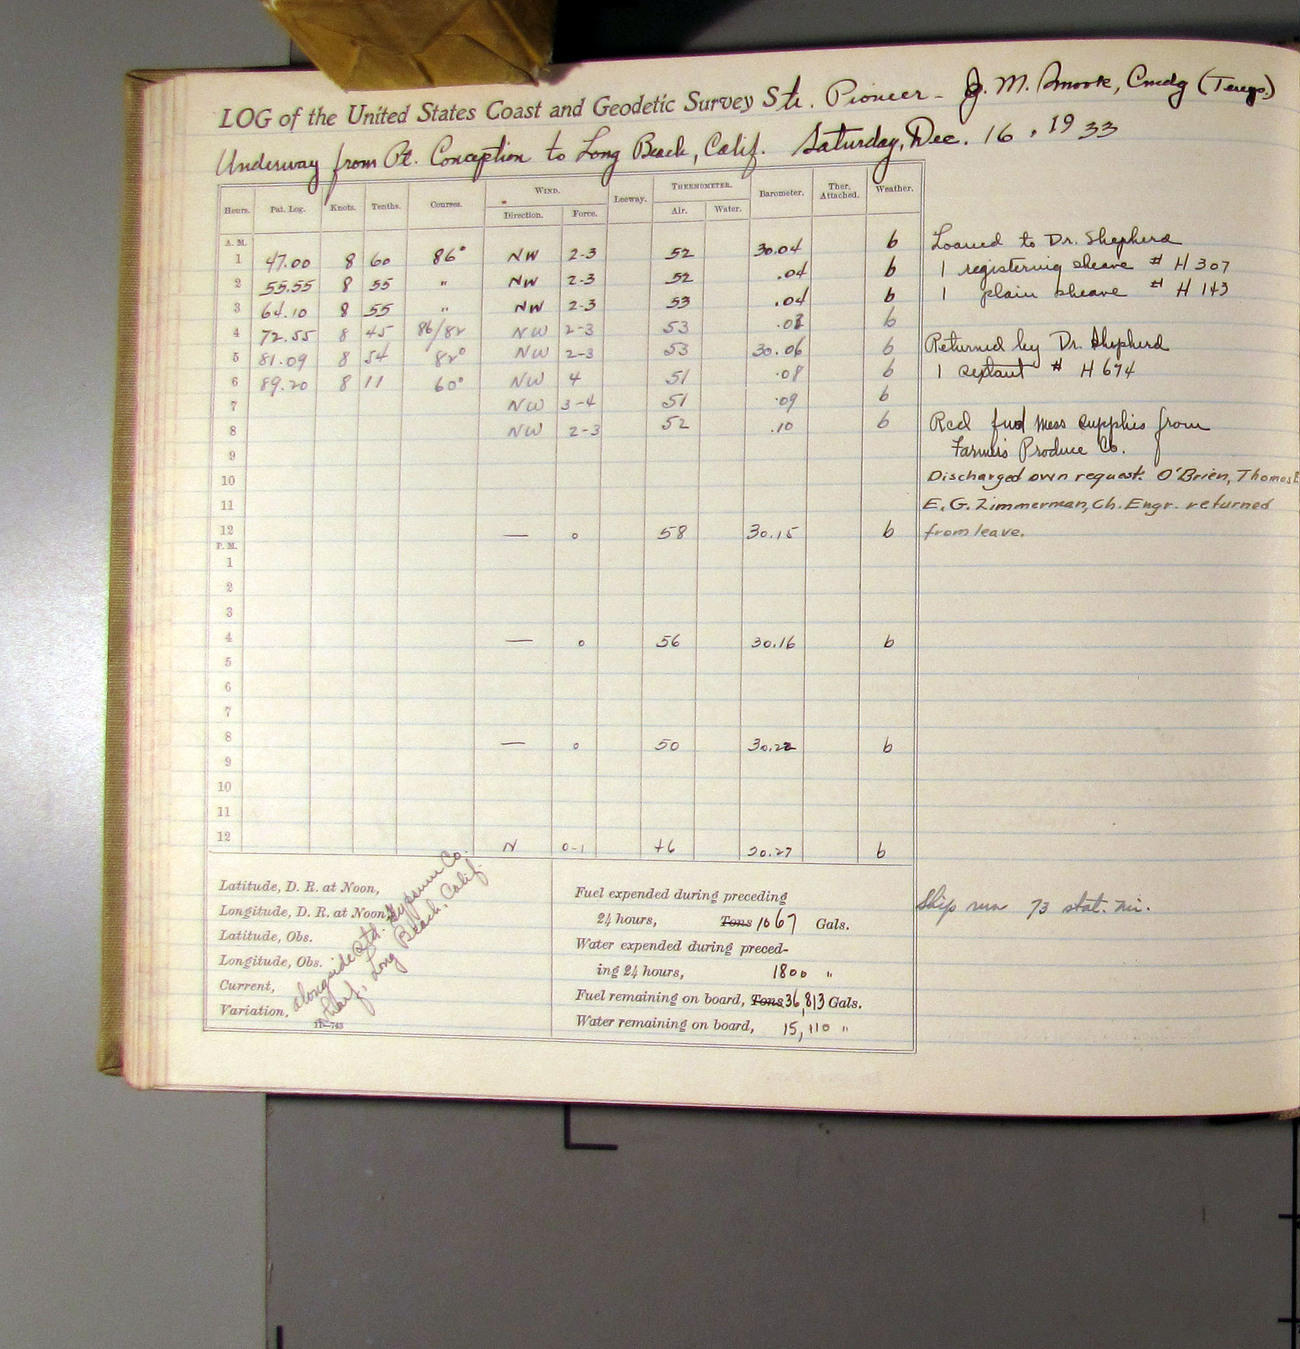 LOG of the United States Coast and Geodetic Survey Str. Pioneer - J. M. Smook, Cmdg (Tempo.)
Underway from Pt. Conception to Long Beach, Calif. Saturday, Dec. 16, 1933
Hours. Pat. Log. Knots. Tenths. Courses. WIND. Leeway. THERMOMETER. Barometer. Ther. Attached. Weather.
Direction. Force. Air. Water.
A. M.
1 47.00 8 60 86° NW 2-3 52 30.04 b
2 55.55 8 55 " NW 2-3 52 .04 b
3 64.10 8 55 " NW 2-3 53 .04 b
4 72.55 8 45 86/82 NW 2-3 53 b
5 81.09 8 54 82° NW 2-3 53 30.06 b
6 89.20 8 11 60° NW 4 51 .08 b
7 NW 3-4 51 .09 b
8 NW 2-3 52 .10 b
9
10
11
12 — 0 58 30.15 b
P. M.
1
2
3
4 — 0 56 30.16 b
5
6
7
8 — 0 50 30.22 b
9
10
11
12 N 0-1 46 30.27 b
Loaned to Dr. Shepherd
1 registering sheave # H 307
1 plain sheave # H 143
Returned by Dr. Shepherd
1 sextant # H 674
Recd fuel mess supplies from
Farmers Produce Co.
Discharged own request. O'Brien, Thomas E
E. G. Zimmerman, Ch. Engr. returned
from leave.
Latitude, D. R. at Noon,
Longitude, D. R. at Noon,
Latitude, Obs.
Longitude, Obs.
Current,
Variation,
11—743
alongside Std. Gypsum Co.
Wharf, Long Beach, Calif.
Fuel expended during preceding
24 hours, Tons 1067 Gals.
Water expended during preced-
ing 24 hours, 1800 "
Fuel remaining on board, Tons 36,813 Gals.
Water remaining on board, 15,110 "
Ship run 73 stat. mi.